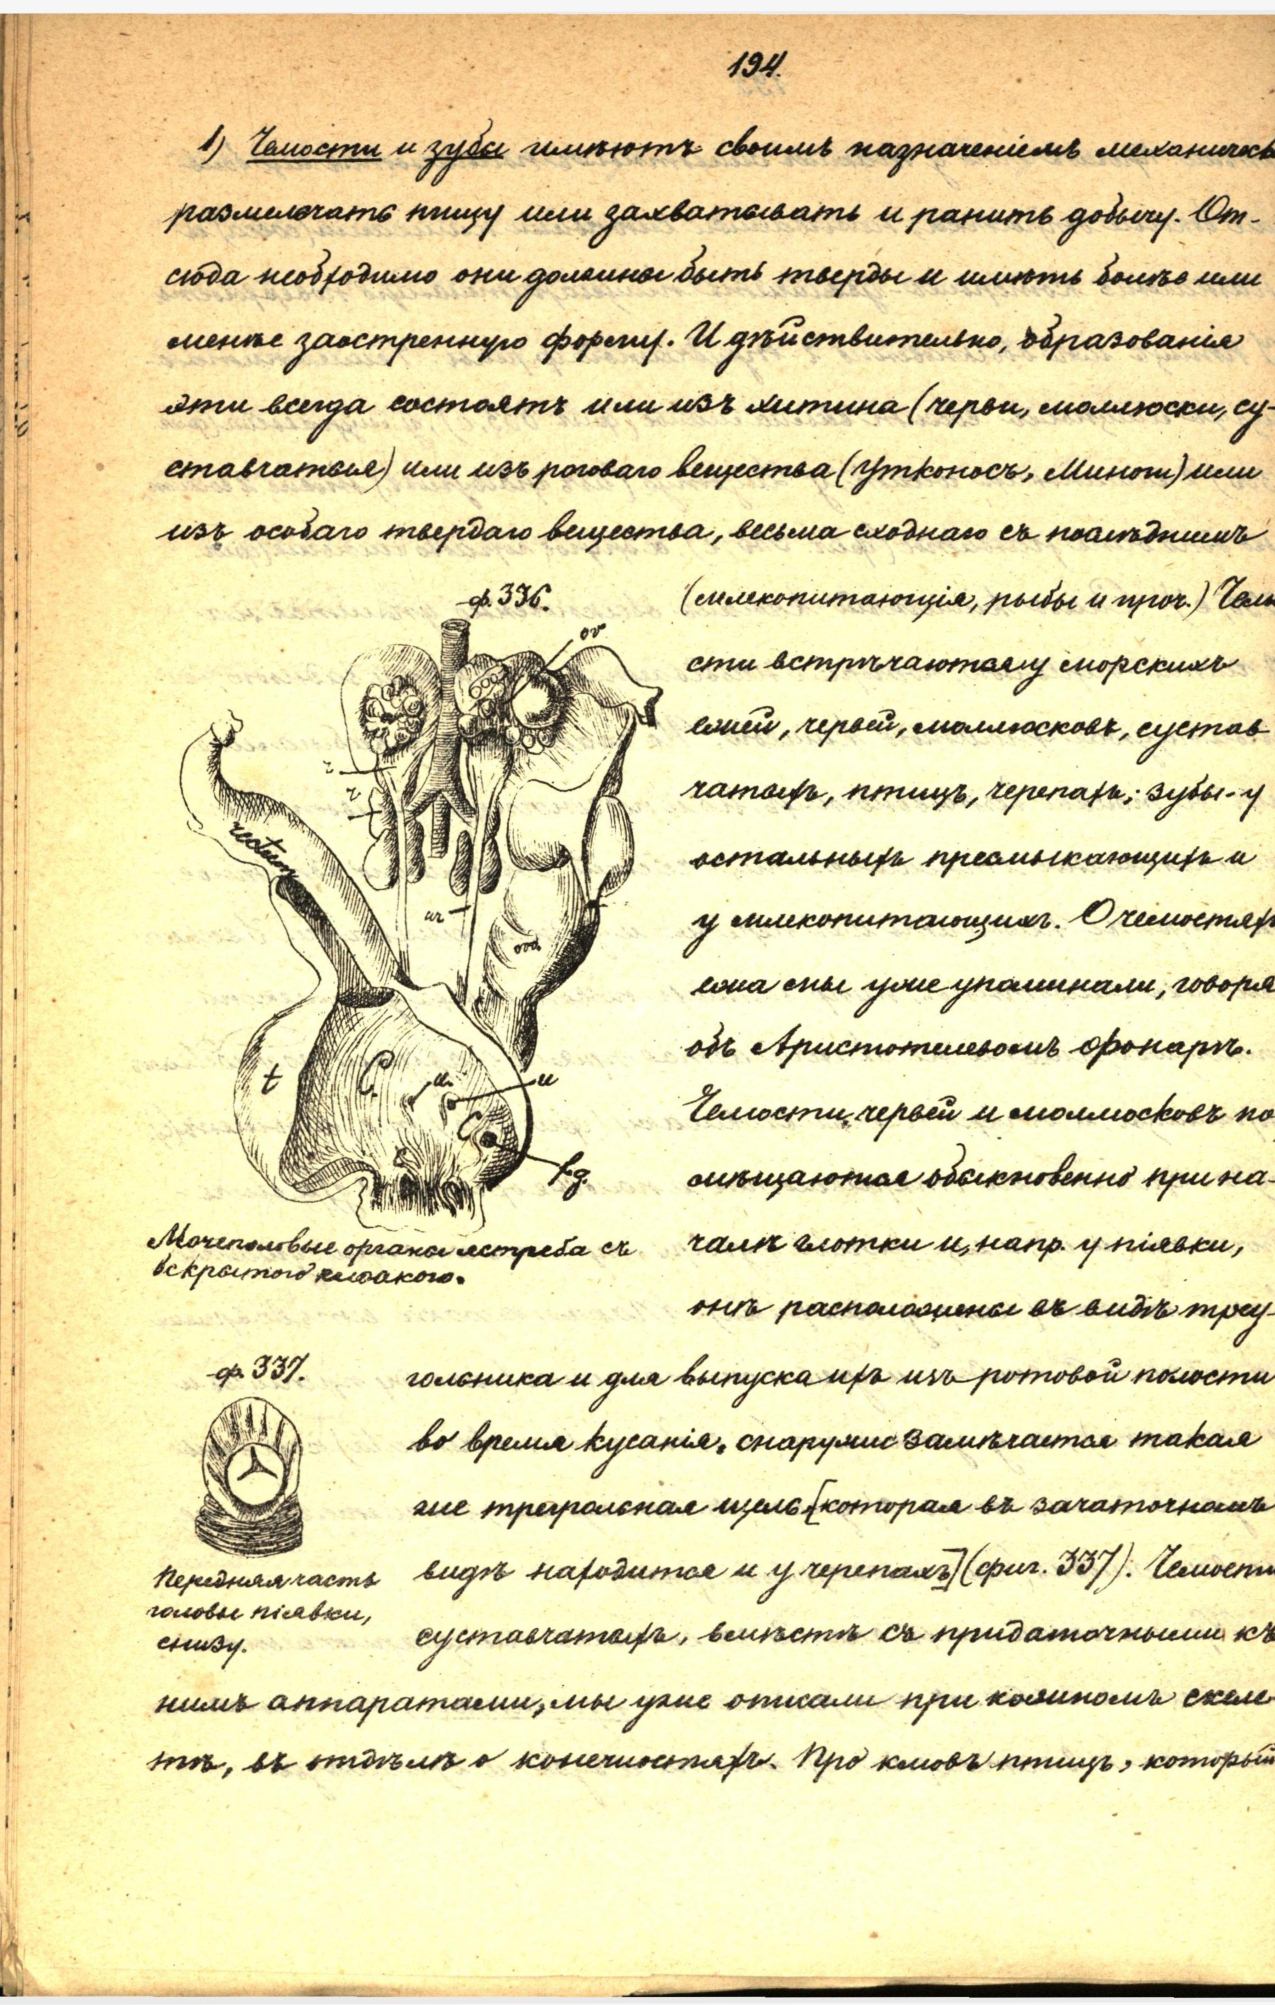 194.
1) Челюсти и зубы имѣютъ своимъ назначеніемъ механически
размельчать пищу или захватывать и ранить добычу. От-
сюда необходимо они должны быть тверды и имѣть болѣе или
менѣе заостренную форму. И дѣйствительно, образованія
эти всегда состоятъ или изъ хитина (черви, моллюски, су-
ставчатыя) или изъ рогового вещества (Утконосъ, Миноги) или
изъ особаго твердаго вещества, весьма сходнаго съ послѣднимъ
ф. 336.
(млекопитающія, рыбы и проч.) Челю
сти встрѣчаются у морскихъ
ежей, червей, моллюсковъ, сустав
чатыхъ, птицъ, черепахъ; зубы - у
остальныхъ пресмыкающихъ и
у млекопитающихъ. О челюстяхъ
ежа мы уже упоминали, говоря
объ Аристотелевомъ фонарѣ.
Челюсти червей и моллюсковъ по
мѣщаются обыкновенно при на-
чалѣ глотки и, напр. у піявки,
онѣ расположены въ видѣ треу-
ov
r
r
rectum
ur
ovd
t
C.
u.
u
C
f.g.
Мочеполовые органы ястреба съ
вскрытою клоакою.
ф. 337.
гольника и для выпуска ихъ изъ ротовой полости
во время кусанія, снаружи замѣчается такая
же треугольная щель [которая въ зачаточномъ
видѣ находится и у черепахъ] (фиг. 337). Челюсти
суставчатыхъ, вмѣстѣ съ придаточными къ
Передняя часть
головы піявки,
снизу.
нимъ аппаратами, мы уже описали при кожномъ скеле-
тѣ, въ отдѣлѣ о конечностяхъ. Про клювъ птицъ, который